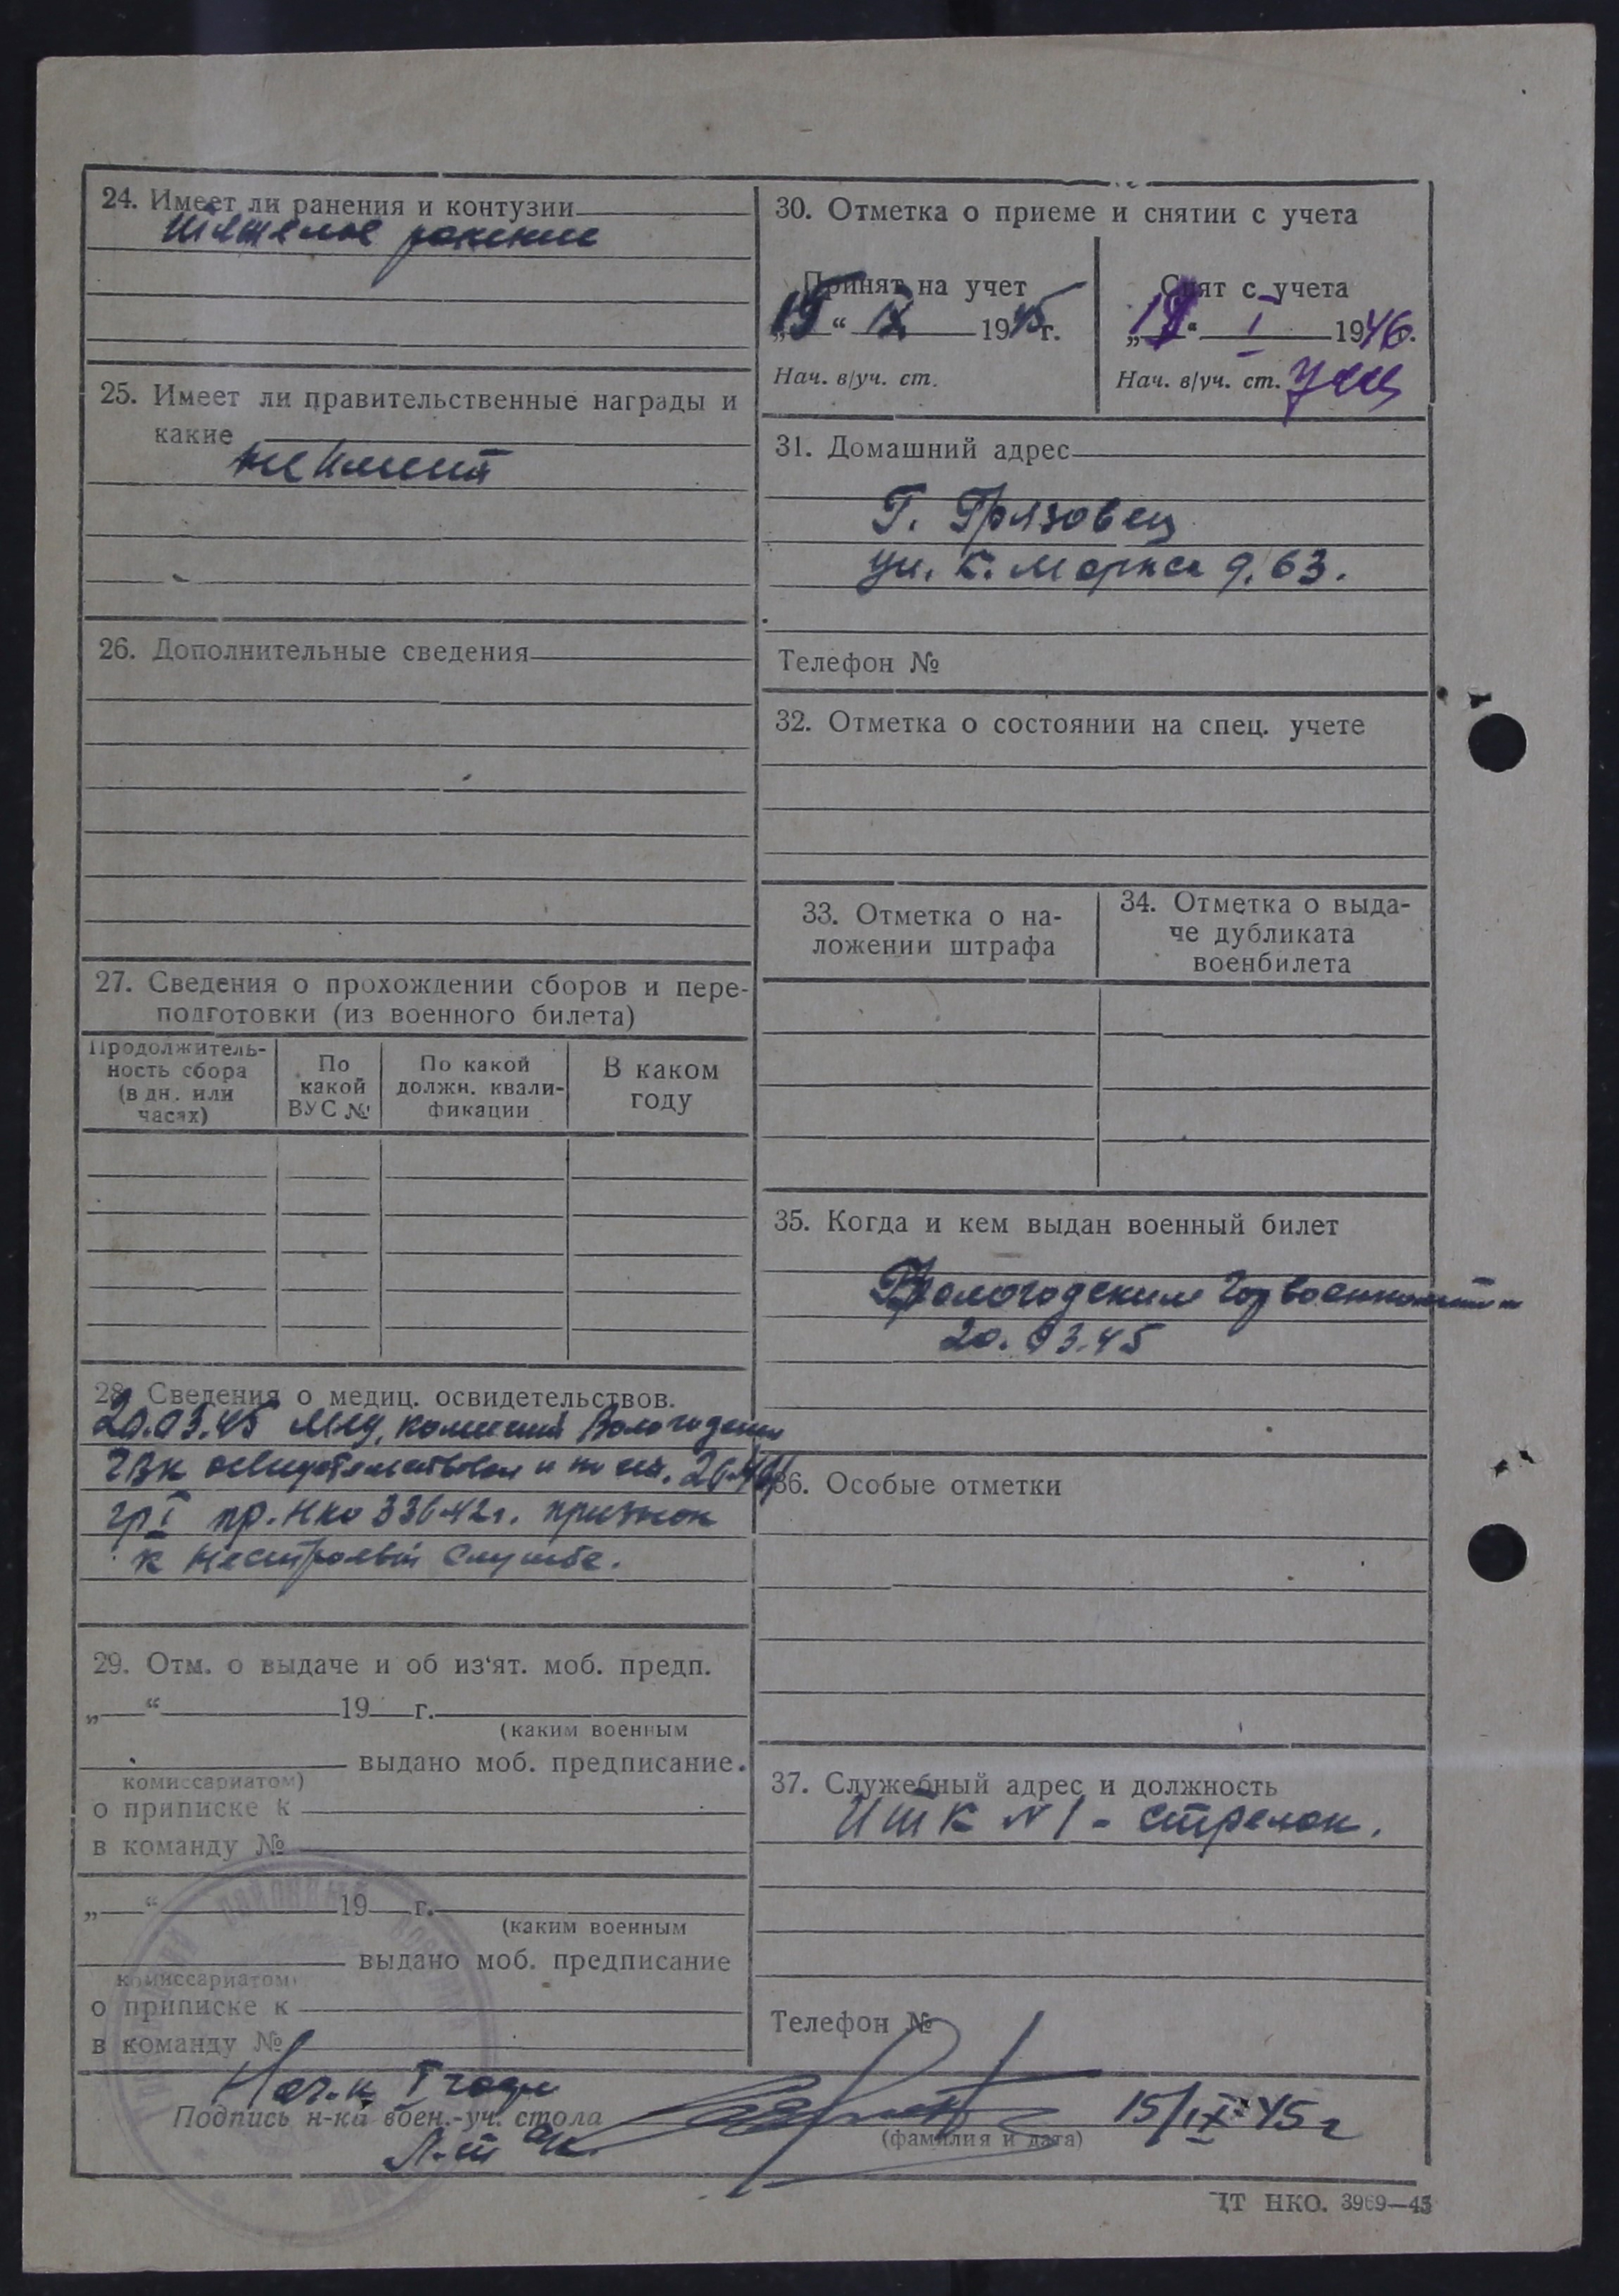 24. Имеет ли ранения и контузии
тяжелое ранение
25. Имеет ли правительственные награды и
какие
не имеет
26. Дополнительные сведения
27. Сведения о прохождении сборов и пере-
подготовки (из военного билета)
Продолжитель-
ность сбора
(в дн. или
часах)
По
какой
ВУС №
По какой
должн. квали-
фикации
В каком
году
28. Сведения о медиц. освидетельствов.
20.03.45 Мед. комиссией Вологодским
ГВК освидетельствован и по ст.
гр I пр. НКО 336-42г. признан
к нестроевой службе.
29. Отм. о выдаче и об из‘ят. моб. предп.
„ “ 19 г.
(каким военным
выдано моб. предписание.
комиссариатом)
о приписке к
в команду №
„ “ 19 г.
(каким военным
выдано моб. предписание
комиссариатом)
о приписке к
в команду №
30. Отметка о приеме и снятии с учета
Принят на учет
„15“ IX 1945г.
Нач. в/уч. ст.
Снят с учета
„ “ I 1946.
Нач. в/уч. ст.
31. Домашний адрес
Г. Грязовец
ул. К. Маркса д. 63.
Телефон №
32. Отметка о состоянии на спец. учете
33. Отметка о на-
ложении штрафа
34. Отметка о выда-
че дубликата
военбилета
35. Когда и кем выдан военный билет
Вологодским Горвоенкоматом
20.03.45
36. Особые отметки
37. Служебный адрес и должность
ИТК №1 - стрелок.
Телефон №
Нач-к I части
Подпись н-ка воен.-уч. стола
Л-т
(фамилия и дата)
15/IX-45г
ЦТ НКО. 3969—45